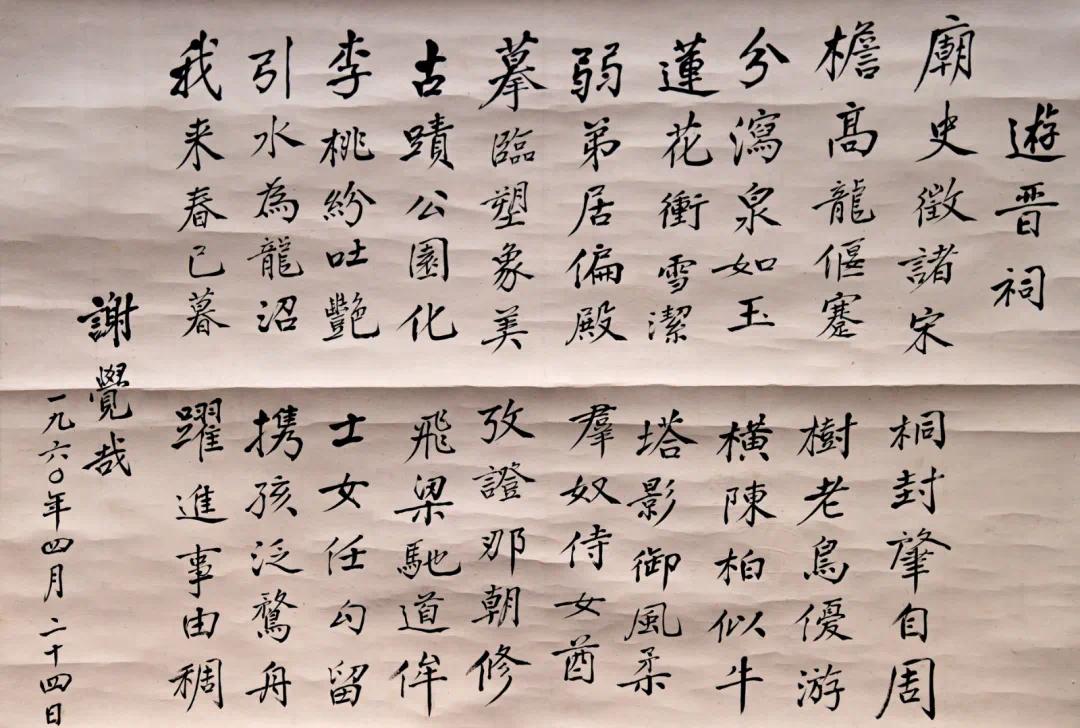 遊晋祠
廟史徵諸宋 桐封肇自周
檐高龍偃蹇 樹老鳥優游
分瀉泉如玉 橫陳柏似牛
蓮花衝雪潔 塔影御風柔
弱弟居偏殿 羣奴侍女酋
摹臨塑象美 攷證那朝修
古蹟公園化 飛梁馳道侔
李桃紛吐艷 士女任勾留
引水為龍沼 携孩泛鶩舟
我来春已暮 躍進事由稠
謝覺哉
一九六〇年四月二十四日